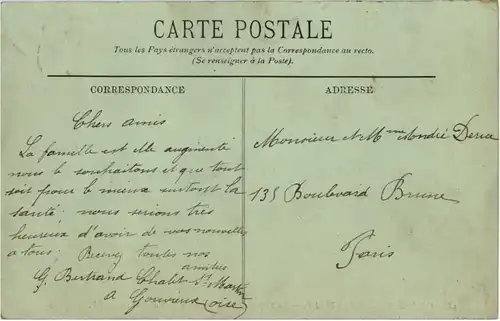 CARTE POSTALE
Tous les Pays étrangers n'acceptent pas la Correspondance au recto.
(Se renseigner à la Poste).
CORRESPONDANCE
Chers amis
La famille est elle augmenté
nous le souhaitons et que tout
soit pour le mieux surtout la
santé; nous serions très
heureux d'avoir de vos nouvelles
a tous; Recevez toutes nos
amitiés
G. Bertrand Chalet St Martin
a Gouvieux (oise)
ADRESSE
Monsieur et Mme André
135 Boulevard Brune
Paris